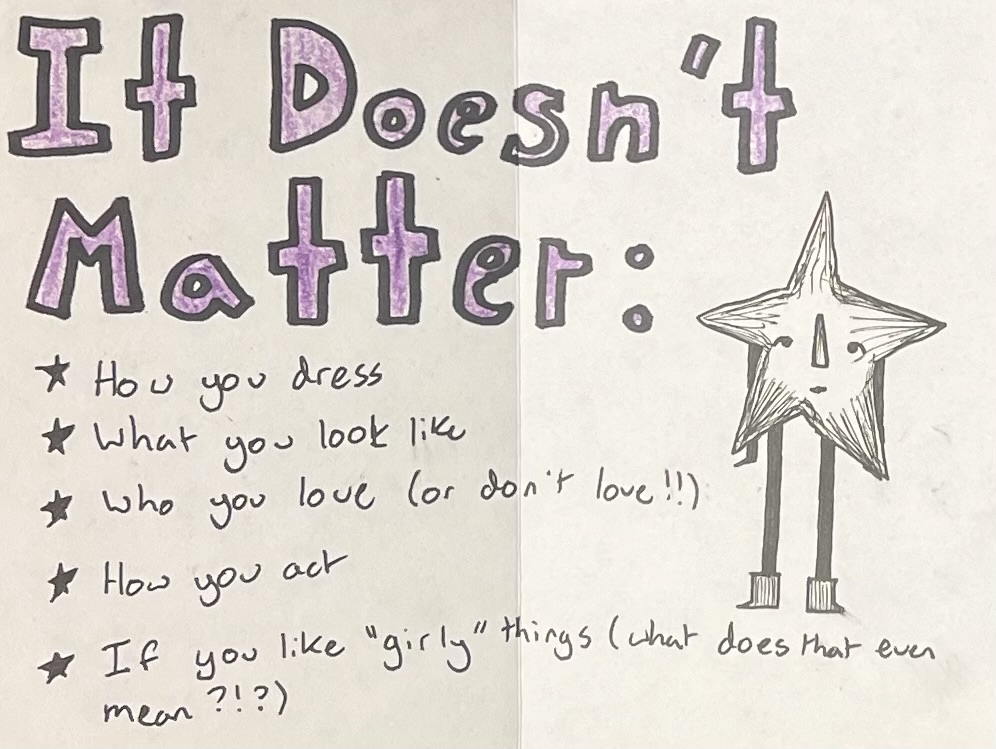 It Doesn't
Matter:
★ How you dress
★ What you look like
★ Who you love (or don't love!!)
★ How you act
★ If you like "girly" things (what does that even
mean?!?)